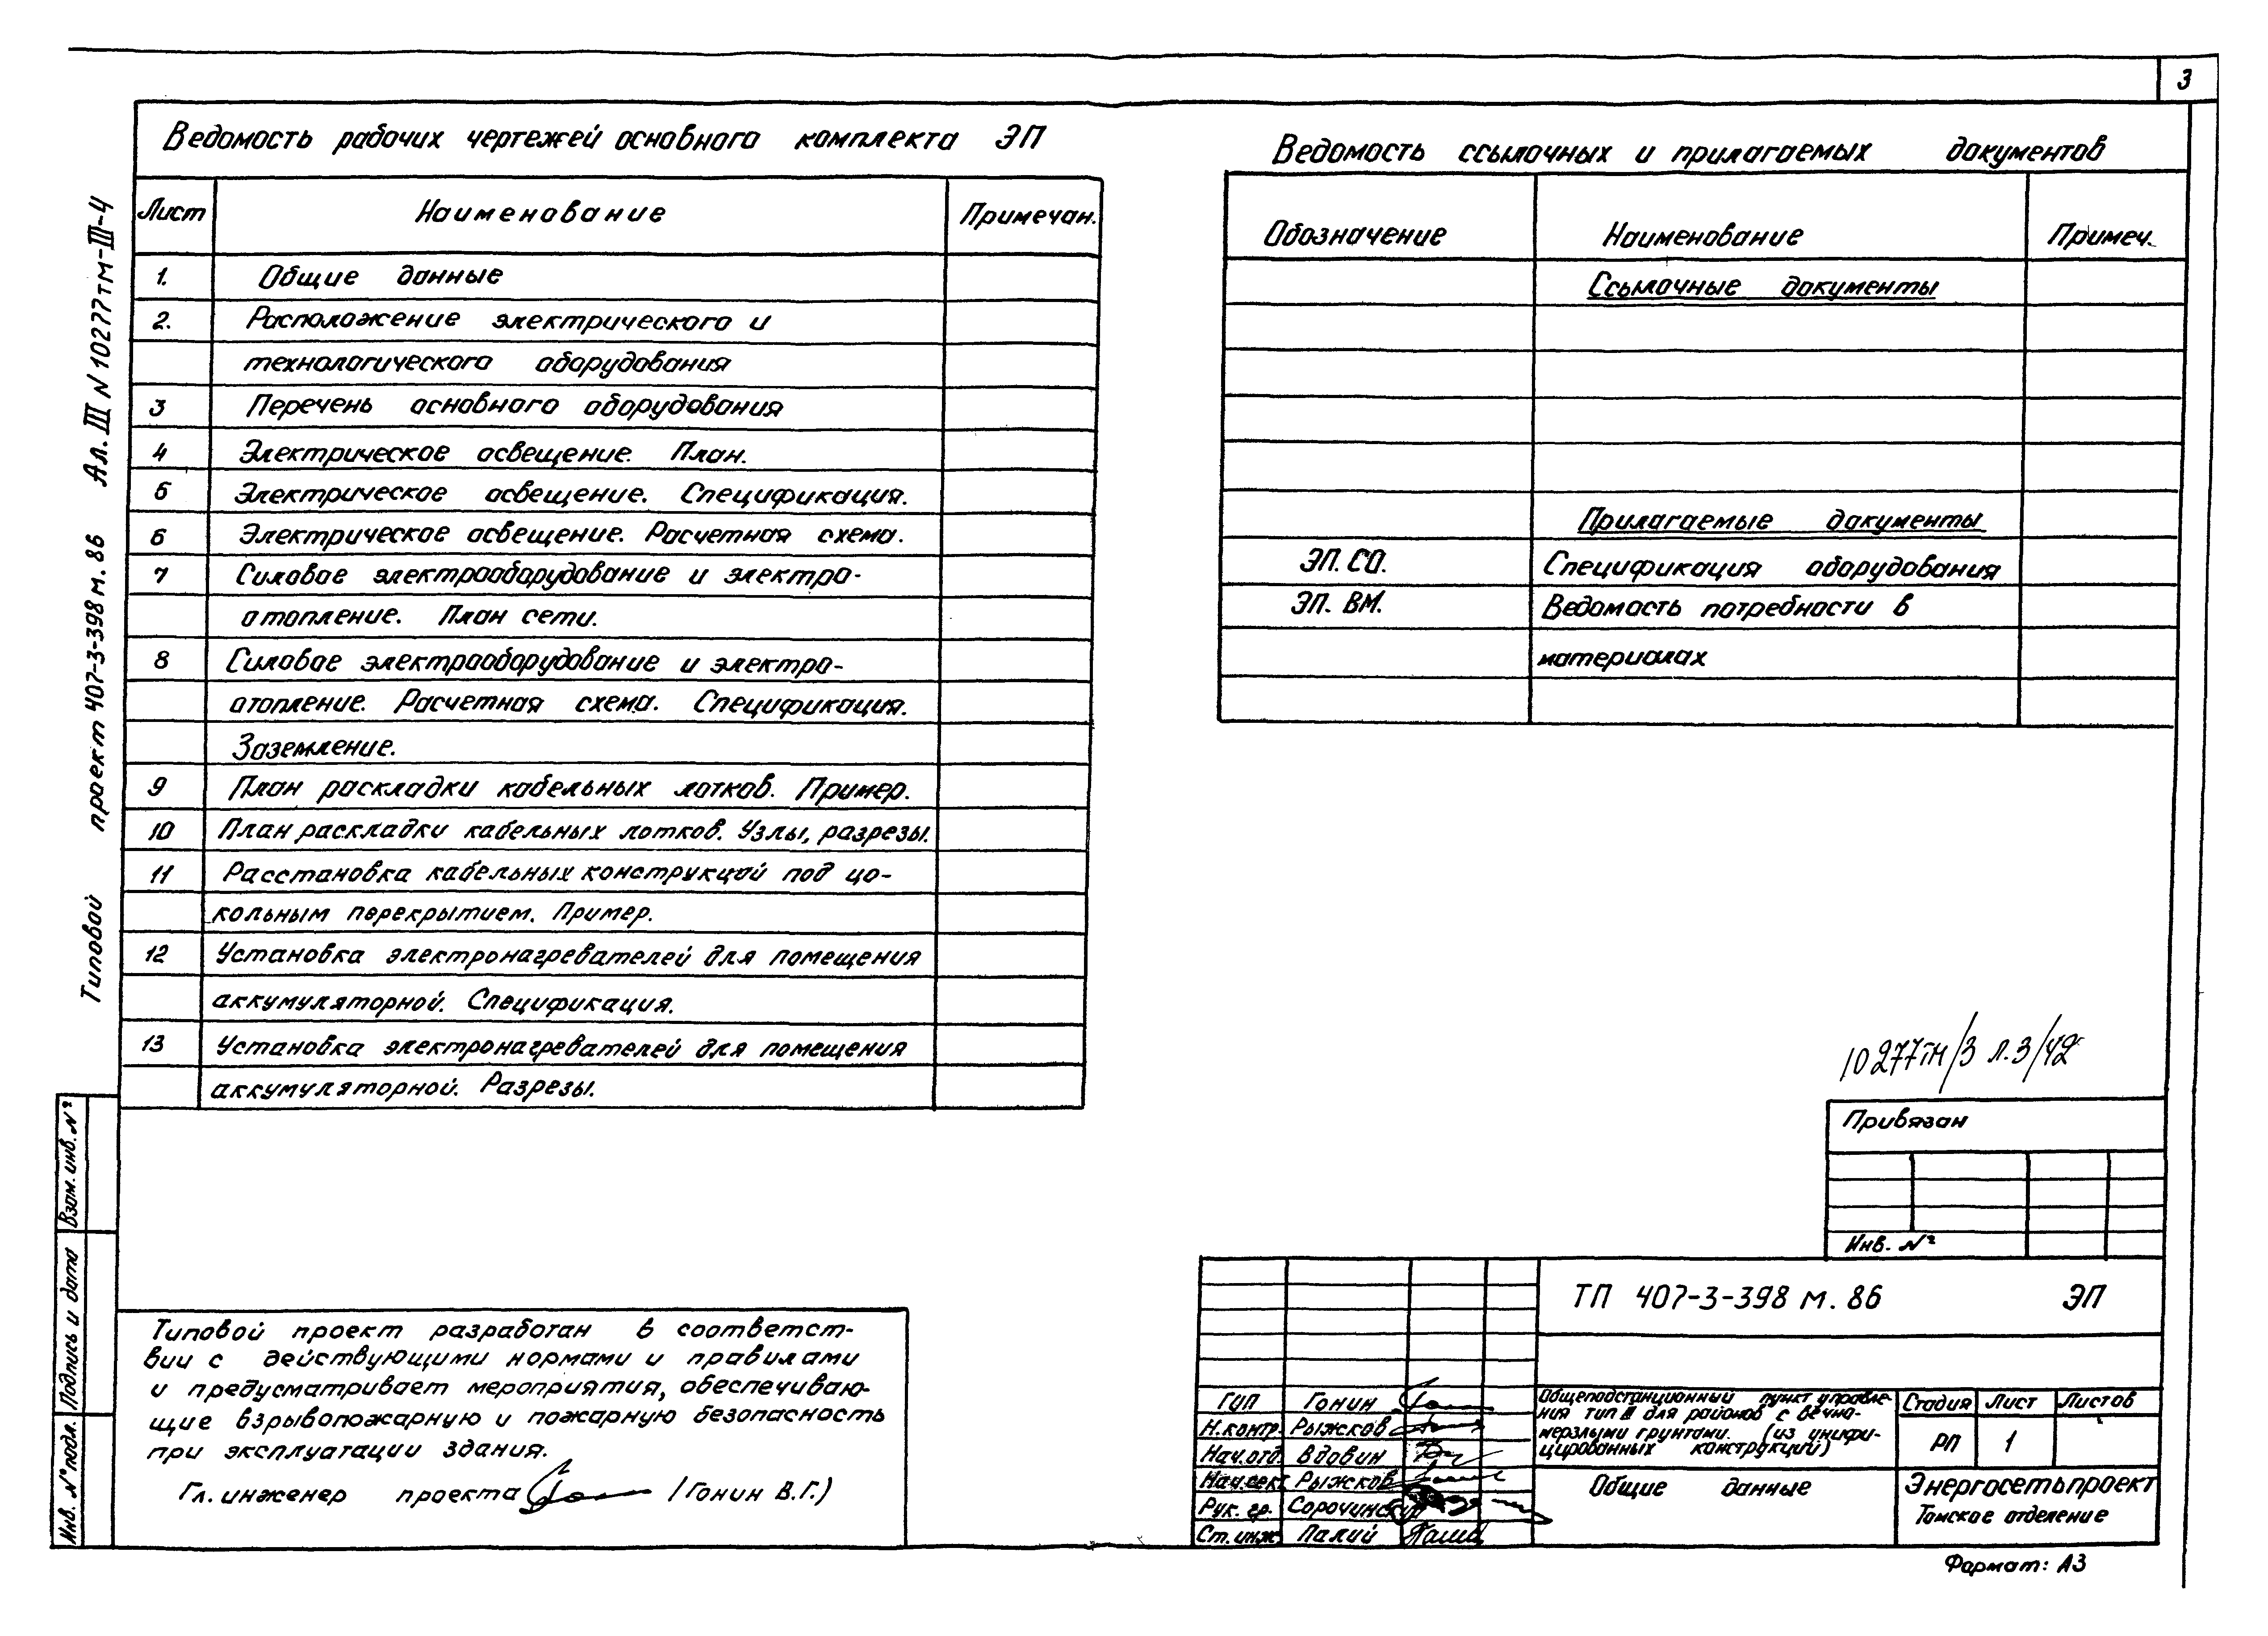 3
Ведомость рабочих чертежей основного комплекта ЭП
Лист Наименование Примечан.
1. Общие данные
2. Расположение электрического и
технологического оборудования
3 Перечень основного оборудования
4 Электрическое освещение. План.
5 Электрическое освещение. Спецификация.
6 Электрическое освещение. Расчетная схема.
7 Силовое электрооборудование и электро-
отопление. План сети.
8 Силовое электрооборудование и электро-
отопление. Расчетная схема. Спецификация.
Заземление.
9 План раскладки кабельных лотков. Пример.
10 План раскладки кабельных лотков. Узлы, разрезы.
11 Расстановка кабельных конструкций под цо-
кольным перекрытием. Пример.
12 Установка электронагревателей для помещения
аккумуляторной. Спецификация.
13 Установка электронагревателей для помещения
аккумуляторной. Разрезы.
Ведомость ссылочных и прилагаемых документов
Обозначение Наименование Примеч.
Ссылочные документы
Прилагаемые документы
ЭП. СО. Спецификация оборудования
ЭП. ВМ. Ведомость потребности в
материалах
Типовой проект 407-3-398 м. 86 Ал. III N 10277тм-III-4
Взам. инв. №
Подпись и дата
Инв. № подл.
Типовой проект разработан в соответст-
вии с действующими нормами и правилами
и предусматривает мероприятия, обеспечиваю-
щие взрывопожарную и пожарную безопасность
при эксплуатации здания.
Гл. инженер проекта /Гонин В.Г.)
10277тм/3 л.3/42
Привязан
Инв. №
ТП 407-3-398 м. 86 ЭП
ГИП Гонин
Н.контр. Рыжков
Нач.отд. Вдовин
Нач.сект. Рыжков
Рук. гр. Сорочинский
Ст. инж. Палий
Общеподстанционный пункт управле-
ния тип III для районов с вечно-
мерзлыми грунтами. (из унифи-
цированных конструкций)
Стадия Лист Листов
РП 1
Общие данные
Энергосетьпроект
Томское отделение
Формат: А3